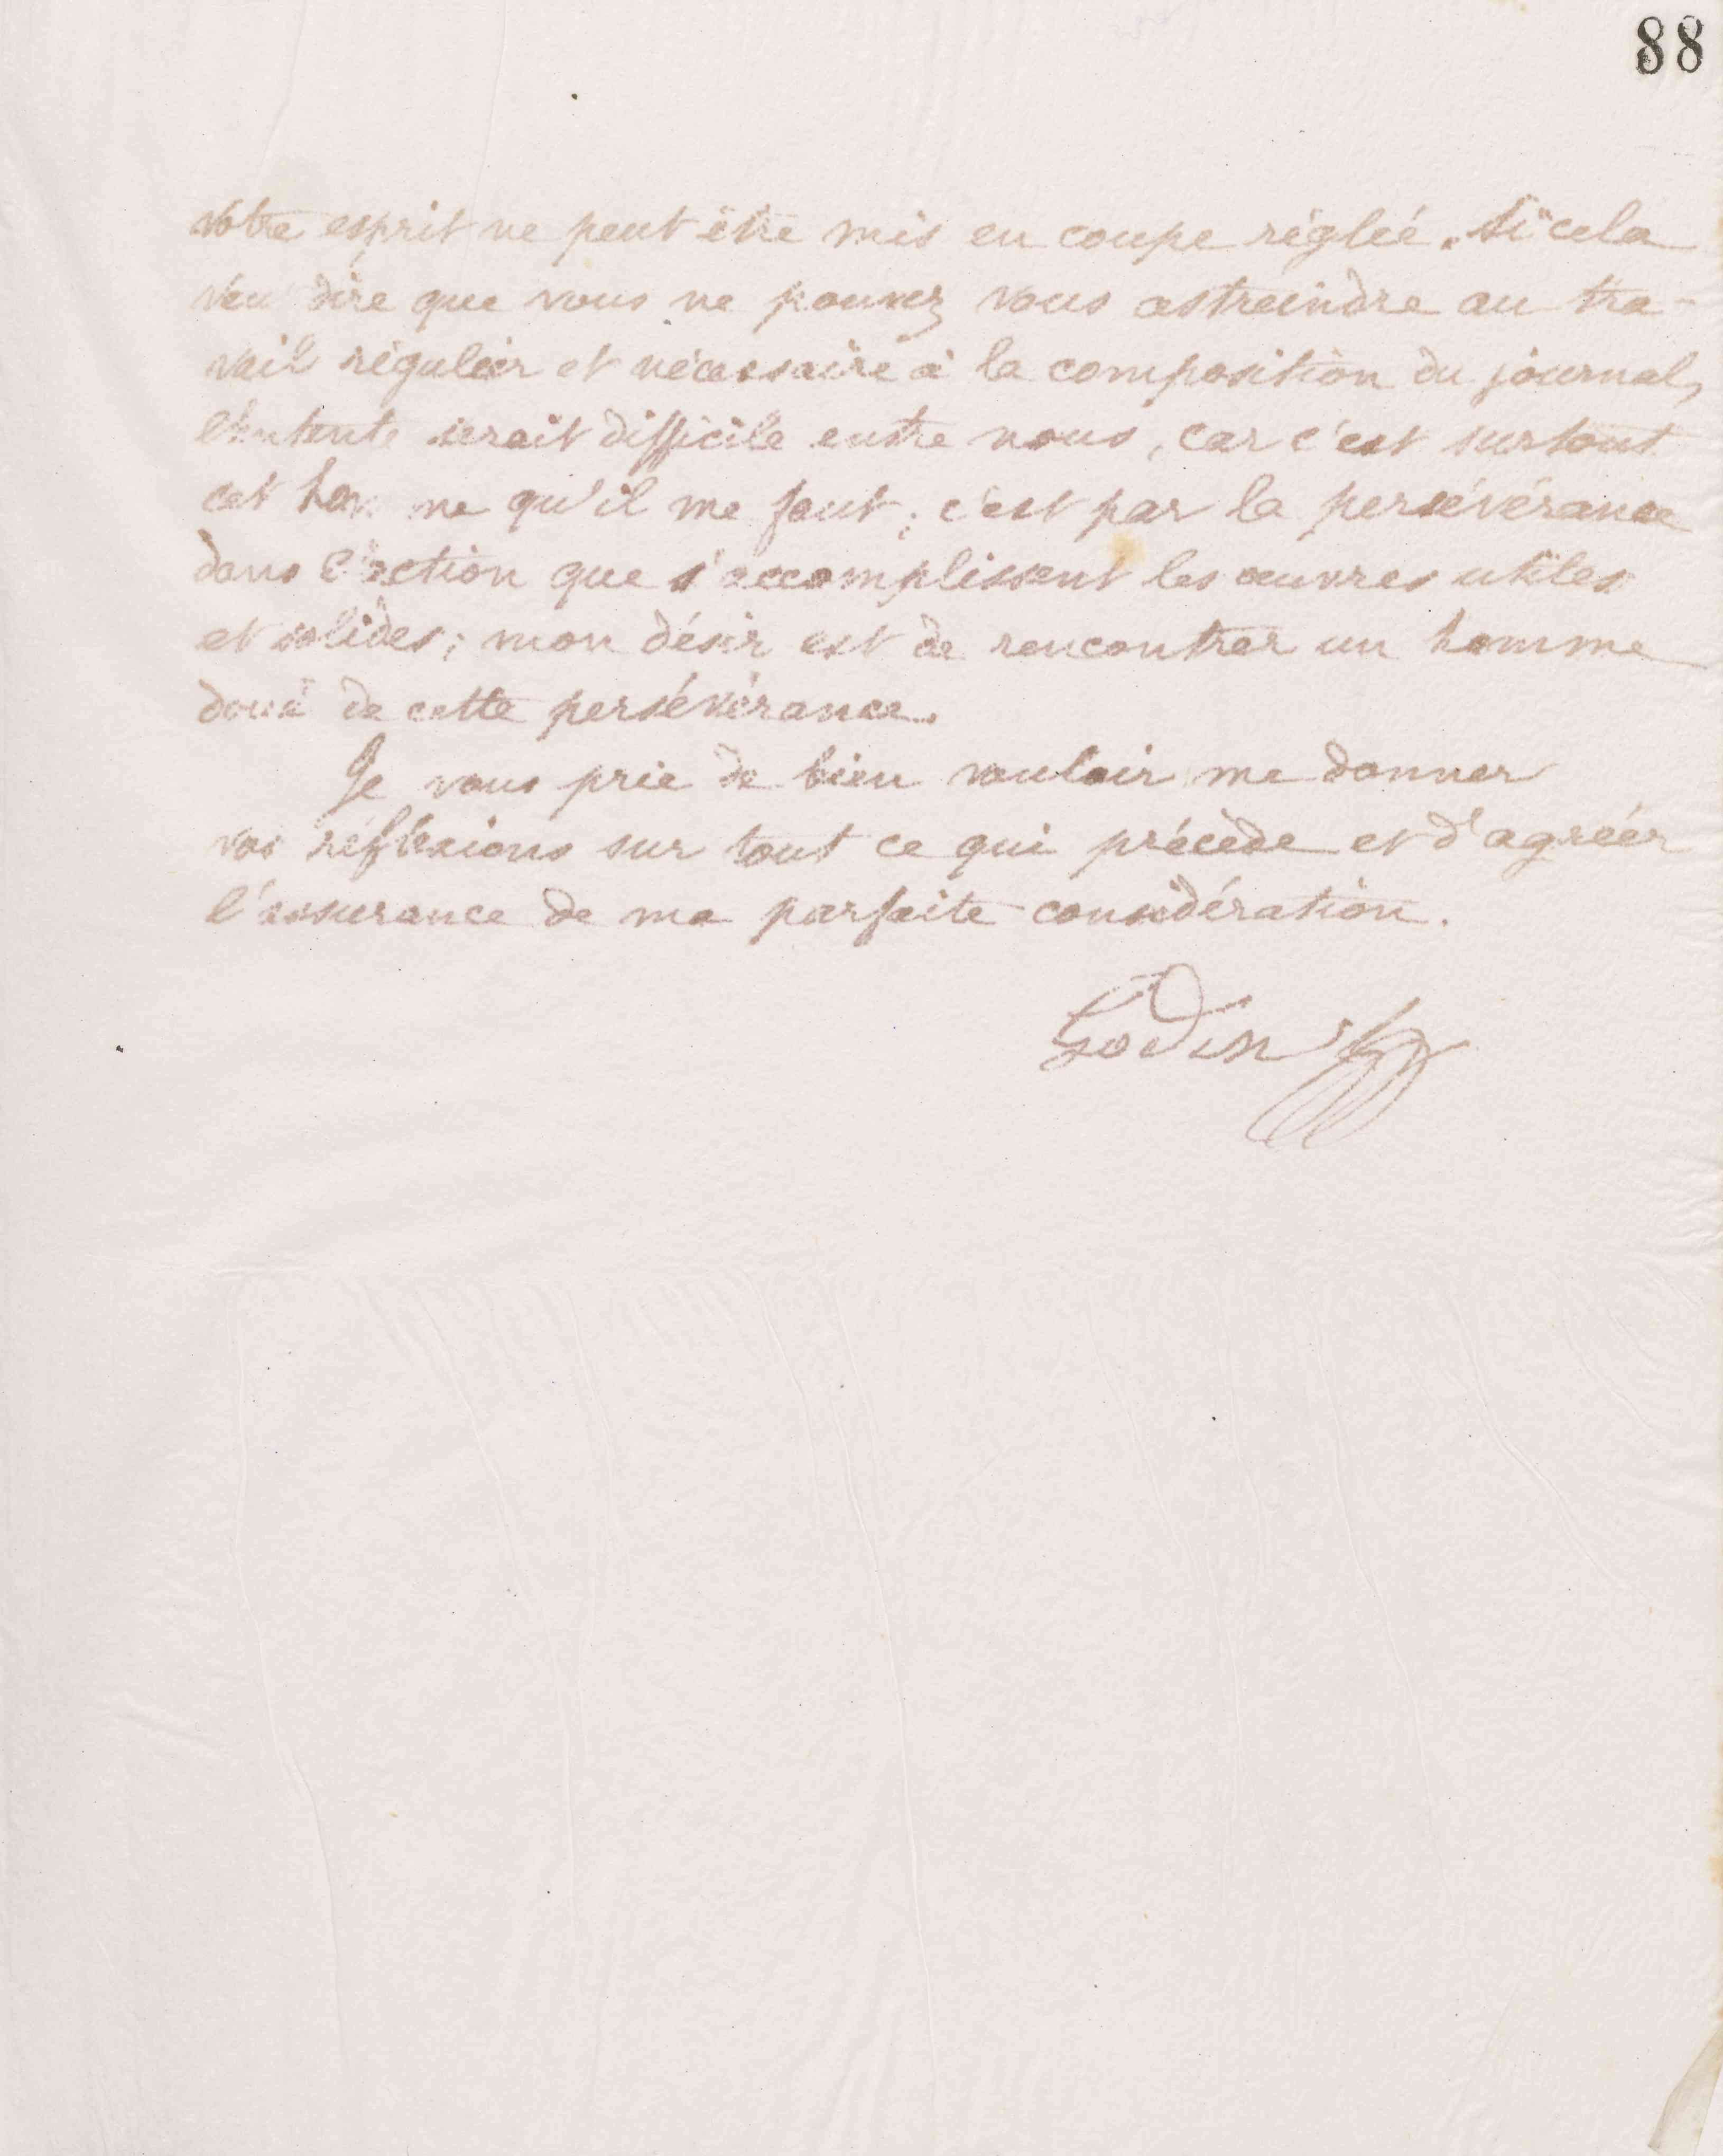 88
votre esprit ne peut être mis en coupe réglée. Si cela
veu dire que vous ne pouvez vous astreindre au tra-
vail régulier et nécessaire à la composition du journal,
l'entente serait difficile entre nous, car c'est surtout
cet homme qu'il me faut; c'est par la persévérance
dans l'action que s'accomplissent les œuvres utiles
et solides; mon désir est de rencontrer un homme
doué de cette persévérance.
Je vous prie de bien vouloir me donner
vos réflexions sur tout ce qui précède et d'agréer
l'assurance de ma parfaite considération.
Godin